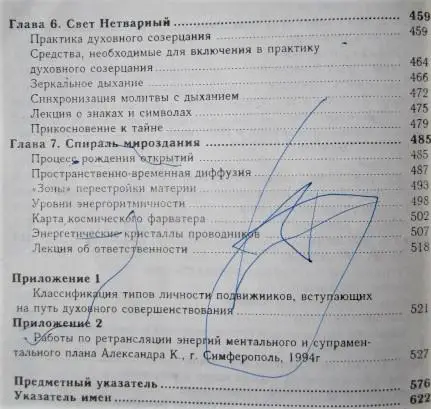 Глава 6. Свет Нетварный 459
Практика духовного созерцания 459
Средства, необходимые для включения в практику
духовного созерцания 464
Зеркальное дыхание 466
Синхронизация молитвы с дыханием 472
Лекция о знаках и символах 475
Прикосновение к тайне 479
Глава 7. Спираль мироздания 485
Процесс рождения открытий 485
Пространственно-временная диффузия 487
«Зоны» перестройки материи 493
Уровни энергоритмичности 498
Карта космического фарватера 502
Энергетические кристаллы проводников 507
Лекция об ответственности 518
Приложение 1
Классификация типов личности подвижников, вступающих
на путь духовного совершенствования 521
Приложение 2
Работы по ретрансляции энергий ментального и супрамен-
тального плана Александра К., г. Симферополь, 1994г 527
Предметный указатель 576
Указатель имен 622